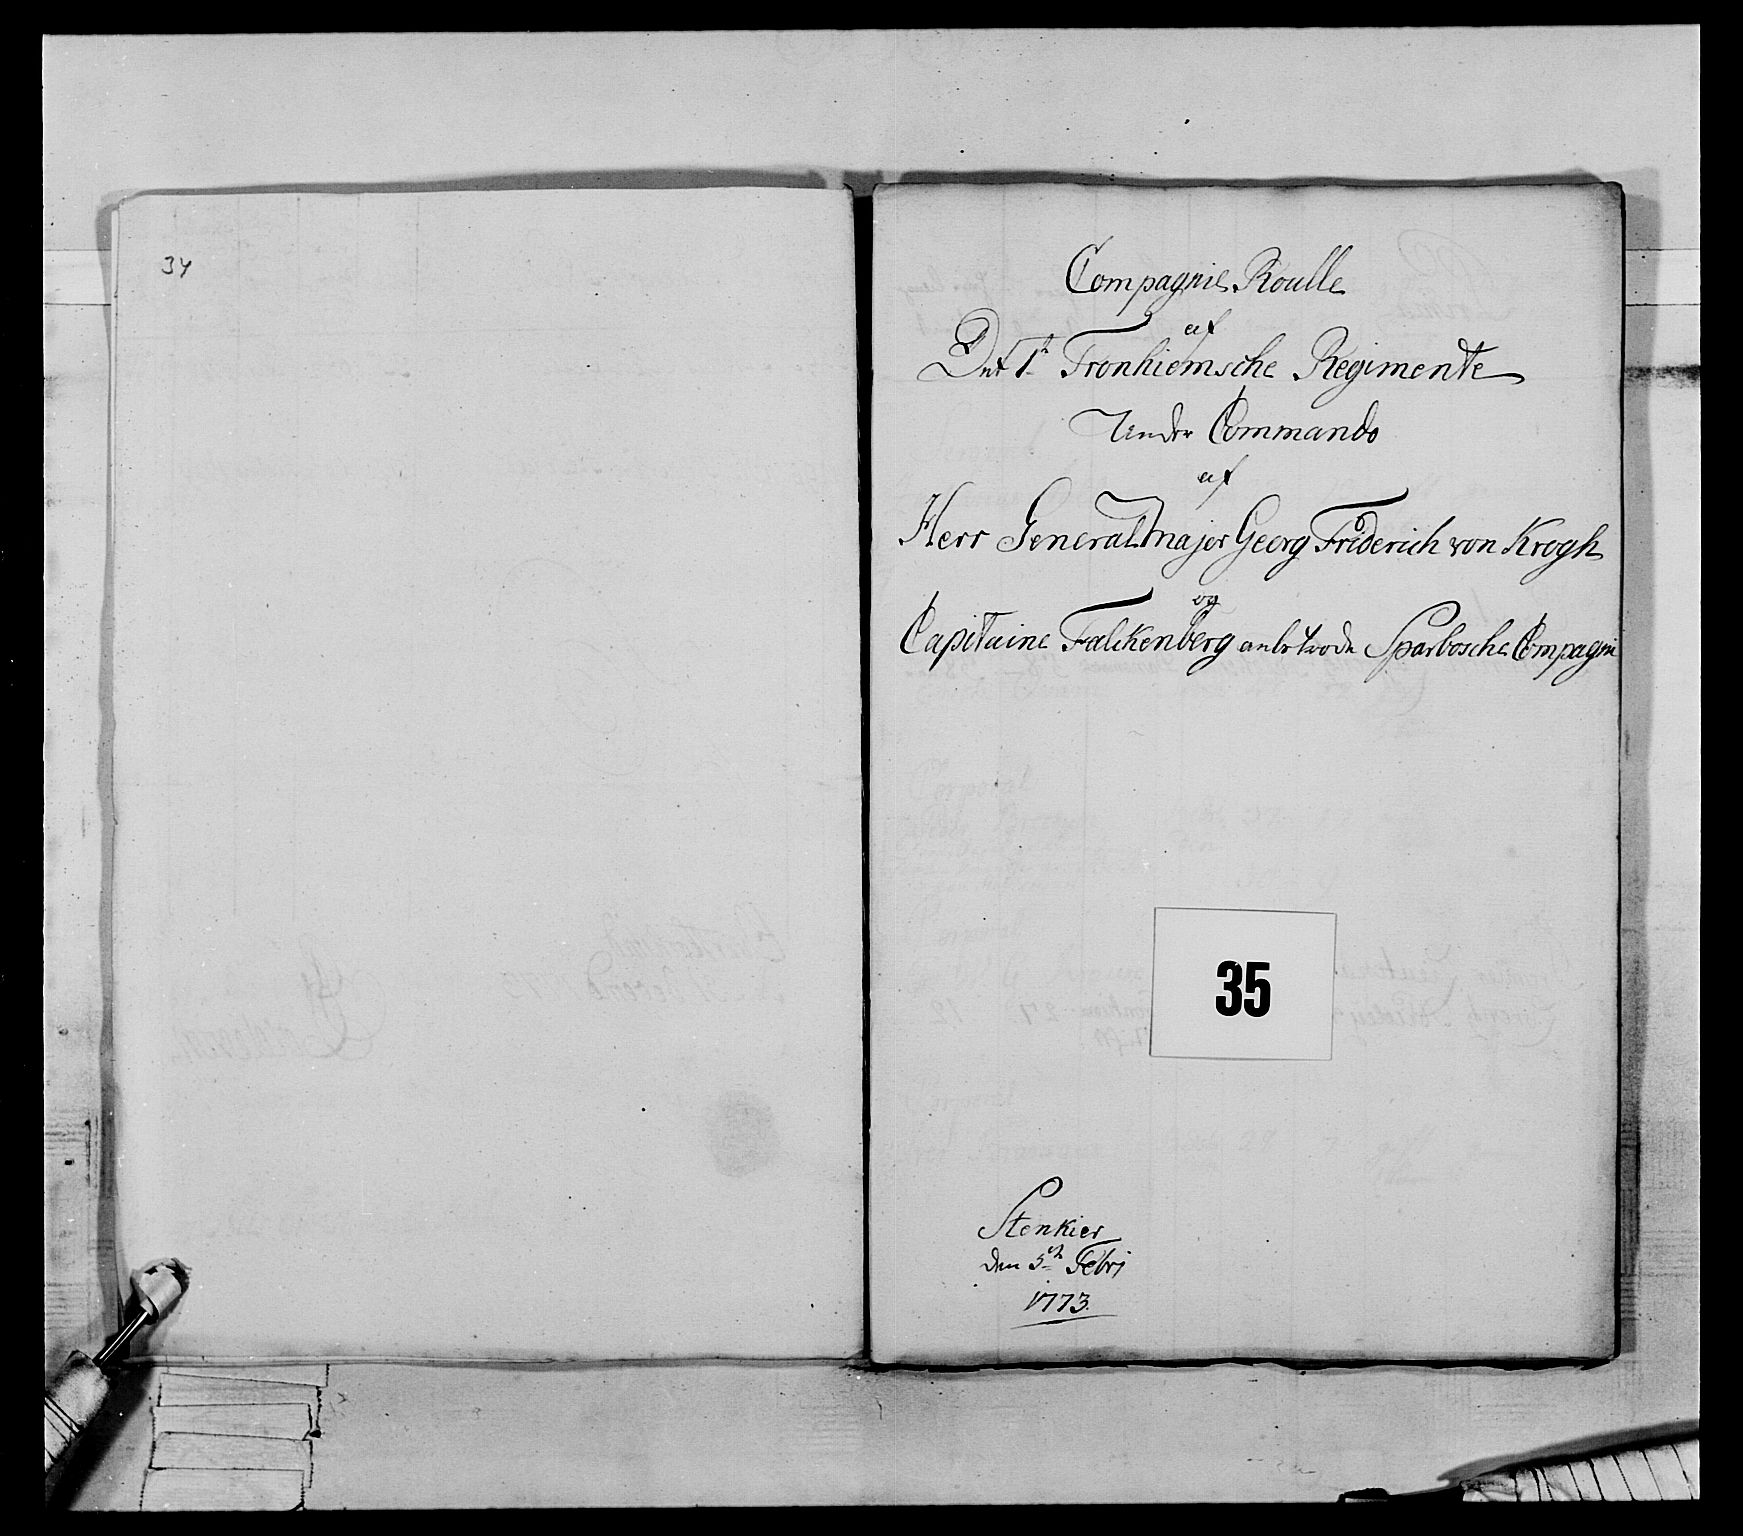 34
Compagnie Roulle
af
Det 1te Tronhiemsche Regimente
Under Commando
af
Herr General Major Georg Friderich von Krogh
og
Capitaine Falckenberg anbetroede Sparbosche Compagni
35
Stenkier
den 5te Febrj
1773.